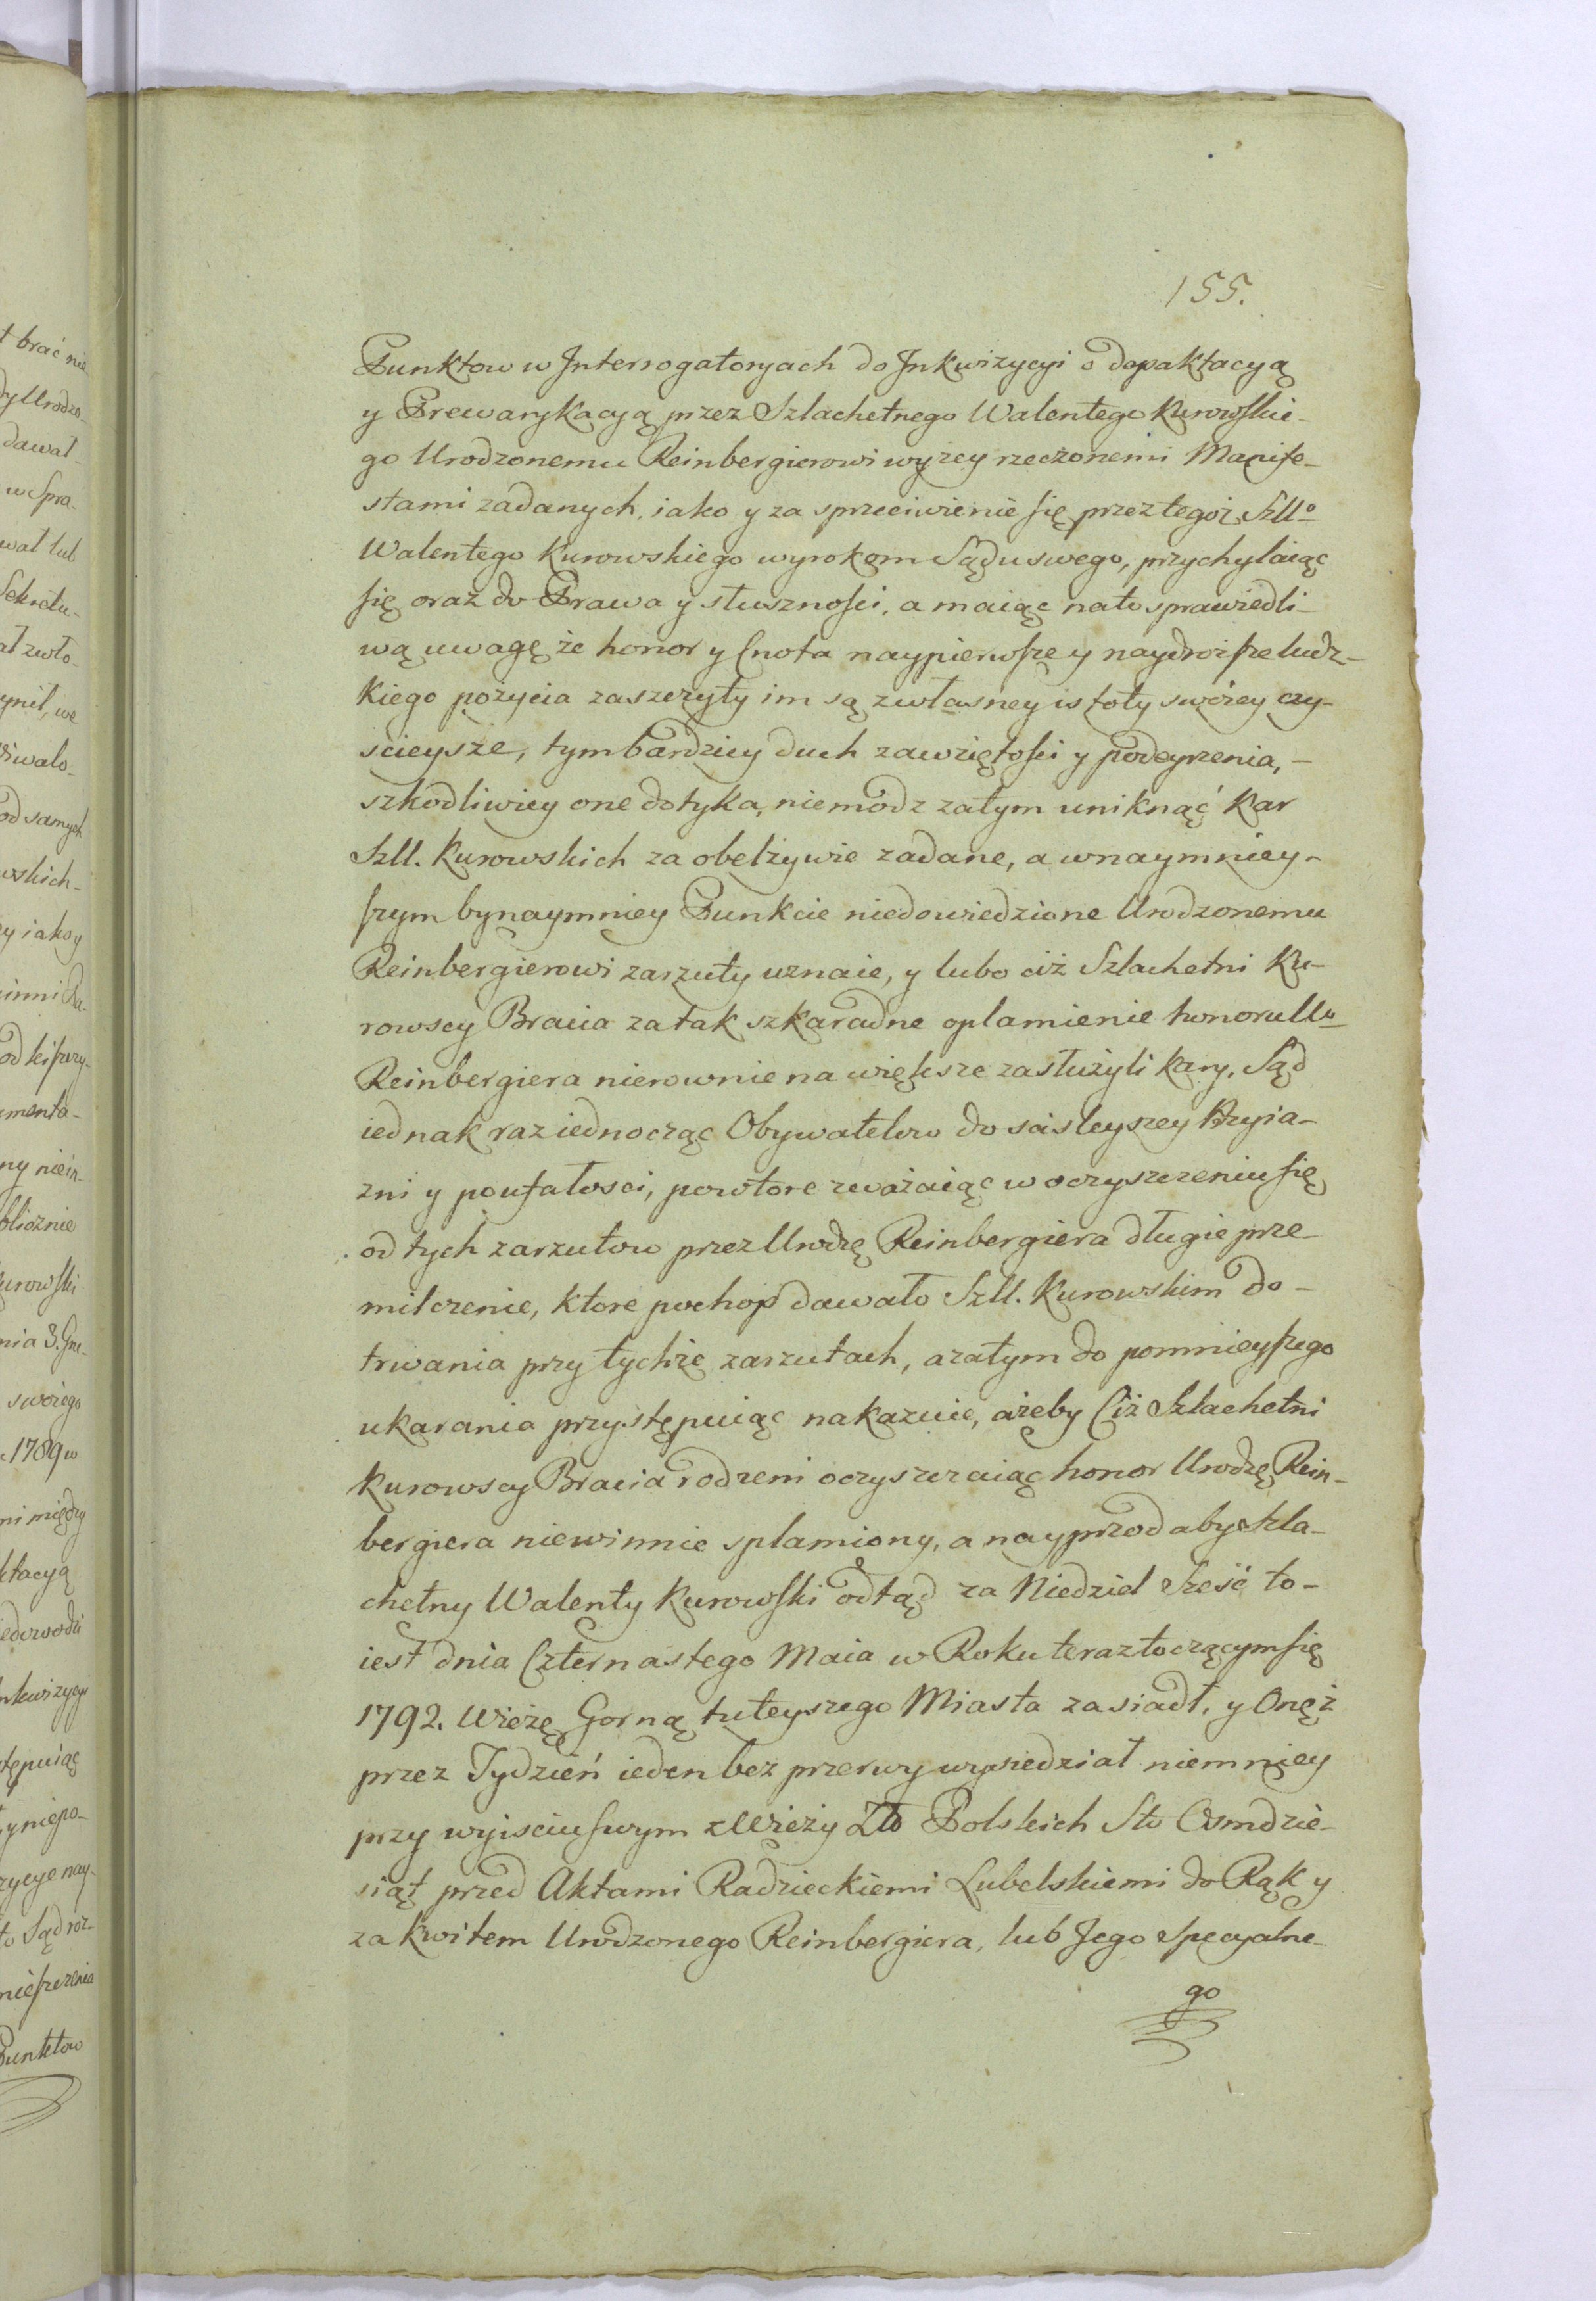 155.
Punktow w Interrogatoryach do Inkwizycyi o depaktacyą
y Prewarykacyą przez Szlachetnego Walentego Kurowskie-
go Urodzonemu Reinbergierowi wyzey rzeczonemi Manife-
stami zadanych, iako y za sprzeciwienie się przez tegoż Szllo
Walentego Kurowskiego wyrokom Sądu swego, przychylaiąc
się oraz do Prawa y słusznosci, a maiąc na to sprawiedli-
wą uwagę że honor y Cnota naypierwsze y naydroższe ludz-
kiego pożycia zaszczyty im są z własney istoty swoiey czy-
scieysze, tym bardziey duch zawziętosci y podeyrzenia, -
szkodliwiey one dotyka, niemodz zatym uniknąć kar
Szll. Kurowskich za obelżywie zadane, a w naymniey-
szym bynaymniey Punkcie niedowiedzione Urodzonemu
Reinbergierowi zarzuty uznaie, y lubo ciż Szlachetni Ku-
rowscy Bracia za tak szkaradne oplamienie honoru Uo
Reinbergiera nierownie na większe zasłużyli kary, Sąd
iednak raz iednocząc Obywatelow do scisleyszey Przyia-
zni y poufałosci, powtore zważaiąc w oczyszczeniu się
od tych zarzutow przez Urodzę Reinbergiera długie prze-
milczenie, ktore pochop dawało Szll. Kurowskim do -
trwania przy tychże zarzutach, a zatym do pomnieyszego
ukarania przystępuiąc nakazuie, ażeby Ciż Szlachetni
Kurowscy Bracia rodzeni oczyszczaiąc honor Urodzę Rein-
bergiera niewinnie splamiony, a nayprzod aby Szla-
chetny Walenty Kurowski odtąd za Niedziel Szesć to-
iest dnia Czternastego Maia w Roku teraz toczącym się
1792. Wieżę Gorną tuteyszego Miasta zasiadł, y Onęż
przez Tydzień ieden bez przerwy wysiedział niemniey
przy wyisciu swym z Wieży Zło Polskich Sto Osmdzie-
siąt przed Aktami Radzieckiemi Lubelskiemi do Rąk y
za kwitem Urodzonego Reinbergiera, lub Jego specyalne-
go